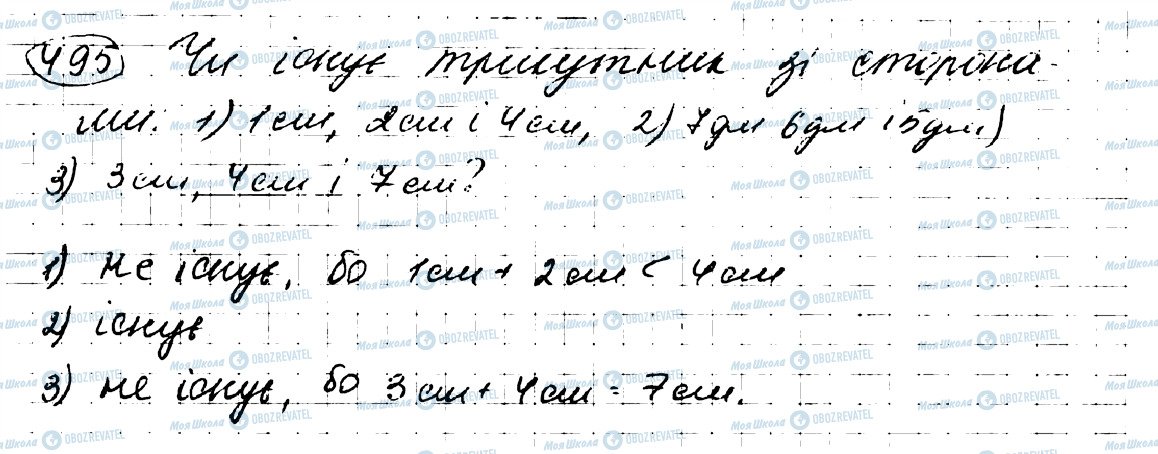 495 Чи існує трикутник зі сторона-
ми. 1) 1 см, 2 см і 4 см, 2) 7 дм 6 дм і 5 дм)
3) 3 см, 4 см і 7 см?
1) не існує, бо 1 см + 2 см < 4 см
2) існує
3) не існує, бо 3 см + 4 см = 7 см.